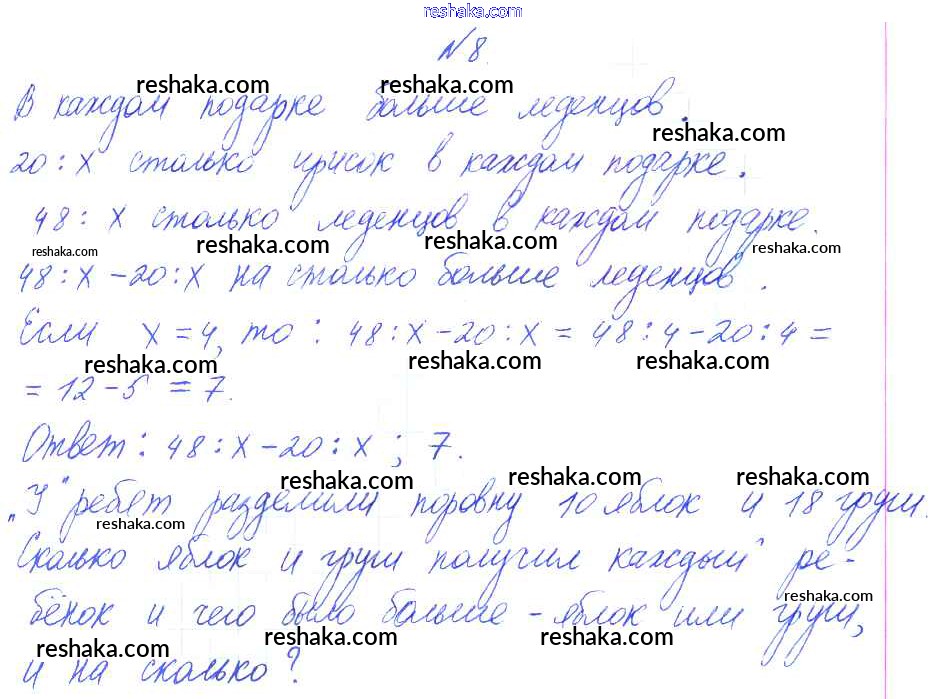 reshaka.com
№ 8.
reshaka.com reshaka.com
В каждом подарке больше леденцов.
reshaka.com
20 : x столько ирисок в каждом подарке.
48 : x столько леденцов в каждом подарке.
reshaka.com reshaka.com reshaka.com reshaka.com
48 : x – 20 : x на столько больше леденцов.
Если x = 4, то : 48 : x – 20 : x = 48 : 4 – 20 : 4 =
reshaka.com reshaka.com reshaka.com
= 12 – 5 = 7.
Ответ : 48 : x – 20 : x ; 7.
reshaka.com reshaka.com reshaka.com
„У" ребят разделили поровну 10 яблок и 18 груш.
reshaka.com
Сколько яблок и груш получил каждый ре-
reshaka.com
бёнок и чего было больше – яблок или груш,
reshaka.com reshaka.com reshaka.com
и на сколько?